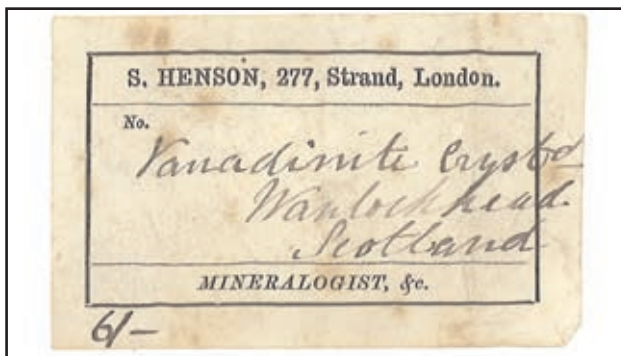 S. HENSON, 277, Strand, London.
No.
Vanadinite Crystd
Wanlockhead
Scotland
MINERALOGIST, &c.
6/–